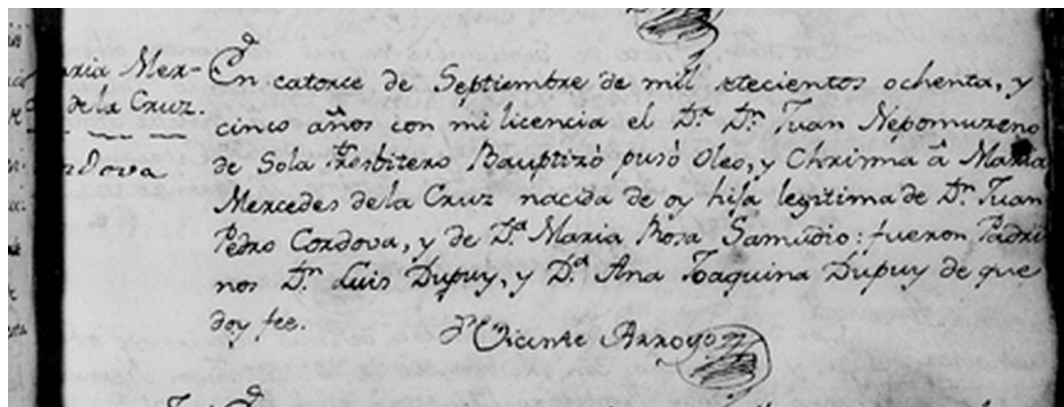 aria Mer-
de la Cruz.
dova
En catorce de Septiembre de mil setecientos ochenta, y
cinco años con mi licencia el Dr. Dn. Juan Nepomuzeno
de Sola Presbitero Bauptizó pusó Oleo, y Chrisma â Maria
Mercedes de la Cruz nacida de oy hija legitima de Dn. Juan
Pedro Cordova, y de Da. Maria Rosa Samudio: fueron Padri
nos Dn. Luis Dupuy, y Da. Ana Joaquina Dupuy de que
doy fee.
Vicente Arroyo